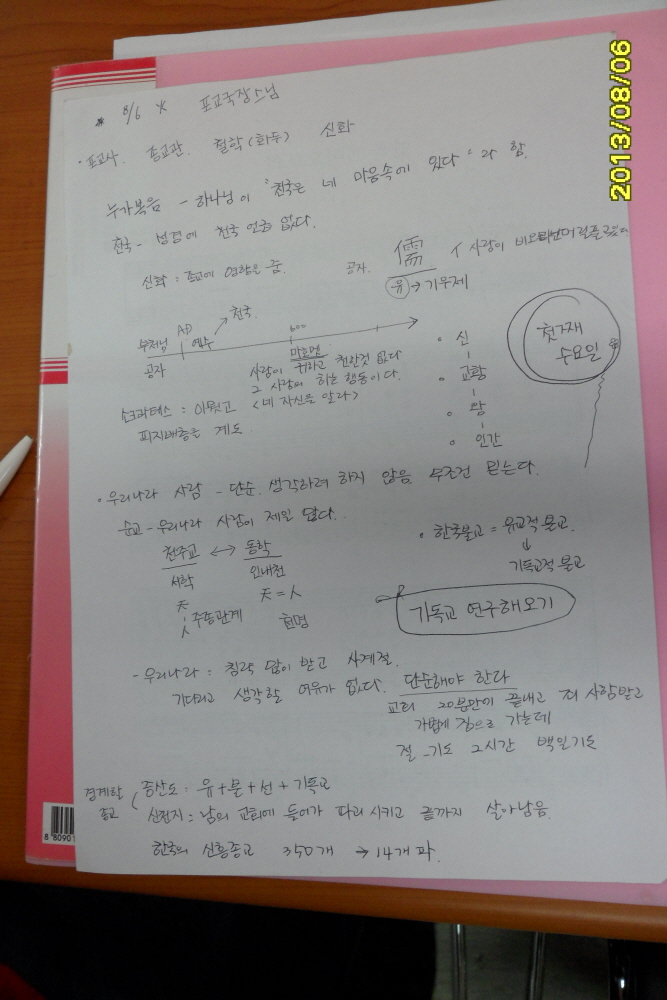 2013/08/06
* 8/6 * 포교국장스님
· 포교사. 종교관. 철학(화두) 신화
누가복음 - 하나님이 "천국은 네 마음속에 있다" 라 함.
천국 - 성경에 천국 언급 없다.
신화 : 종교에 영향을 줌.
공자. 儒 亻사람이
유 → 기우제
천국
부처님 AD 예수 600
공자 마호멧
사람이 귀하고 천한것 없다
그 사람이 하는 행동이다.
소크라테스 : 이뭣고 <네 자신을 알라>
피지배층을 계도
· 신
· 교황
· 왕
· 인간
첫째 수요일
· 우리나라 사람 - 단순. 생각하려 하지 않음. 무조건 믿는다.
순교 - 우리나라 사람이 제일 많다.
천주교 ↔ 동학
서학 인내천
天 天 = 人
人 주종관계
· 한국불교 = 유교적 불교.
↓
기독교적 불교
기독교 연구해오기
- 우리나라 : 침략 많이 받고 사계절.
기다리고 생각할 여유가 없다. 단순해야 한다
교회 20분만에 끝내고 죄 사함받고
가볍게 집으로 가는데
절 - 기도 2시간 백일기도
경계할 종교
증산도 : 유+불+선+기독교
신천지 : 남의 교회에 들어가 파괴 시키고 끝까지 살아남음.
한국의 신흥종교 350개 → 14개 파.
8 8090